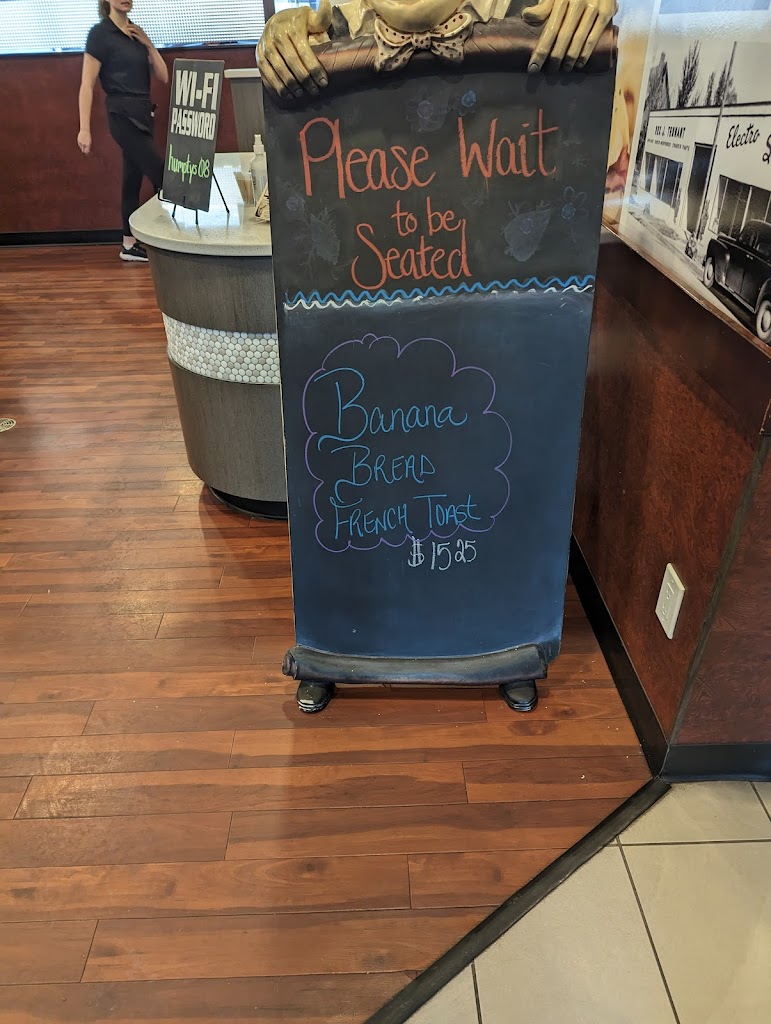 WI-FI
PASSWORD
humptys08
Please Wait
to be
Seated
Banana
BREAD
FRENCH TOAST
$ 15 25
TENNANT
Electro